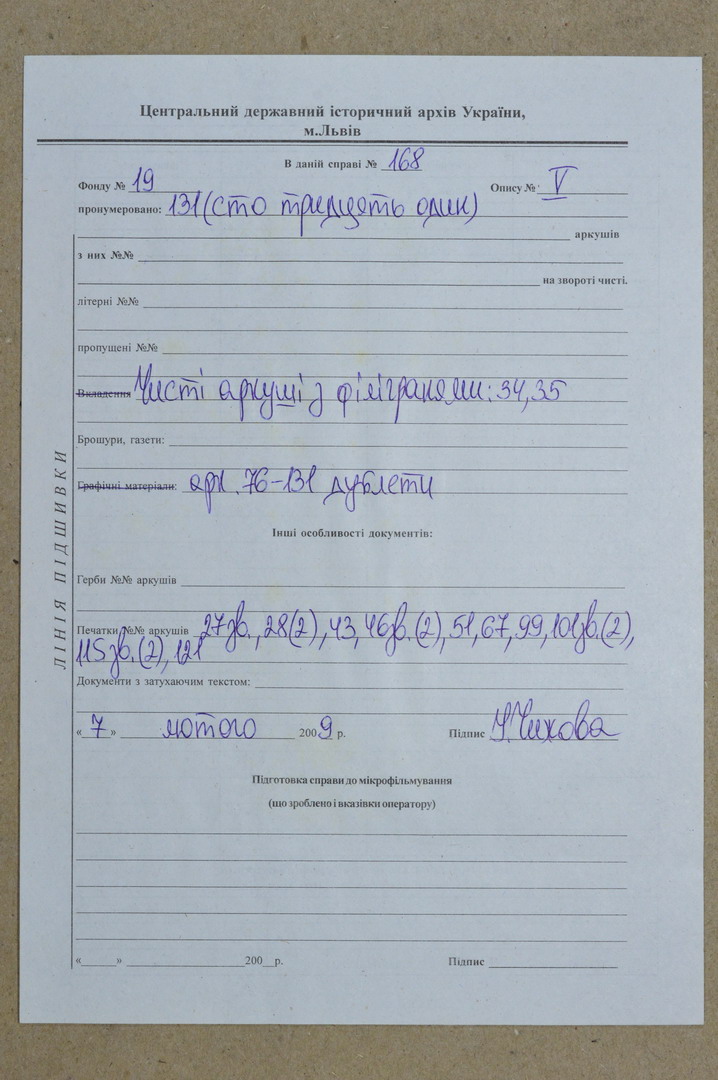 Центральний державний історичний архів України,
м..Львів
В даній справі № 168
Фонду № 19 Опису № V
пронумеровано: 131 (сто тридцять один)
аркушів
з них №№
на звороті чисті.
літерні №№
пропущені №№
Вкладення Чисті аркуші з філігранями: 34, 35
Брошури, газети:
Графічні матеріали: арк. 76-131 дублети
Інші особливості документів:
Герби №№ аркушів
Печатки №№ аркушів 27зв., 28(2), 43, 46зв.(2), 51, 67, 99, 101зв.(2),
115зв.(2), 121
Документи з затухаючим текстом:
« 7 » лютого 2009 р.	Підпис Чихова
Підготовка справи до мікрофільмування
(що зроблено і вказівки оператору)
« » 200 р. Підпис
ЛІНІЯ ПІДШИВКИ